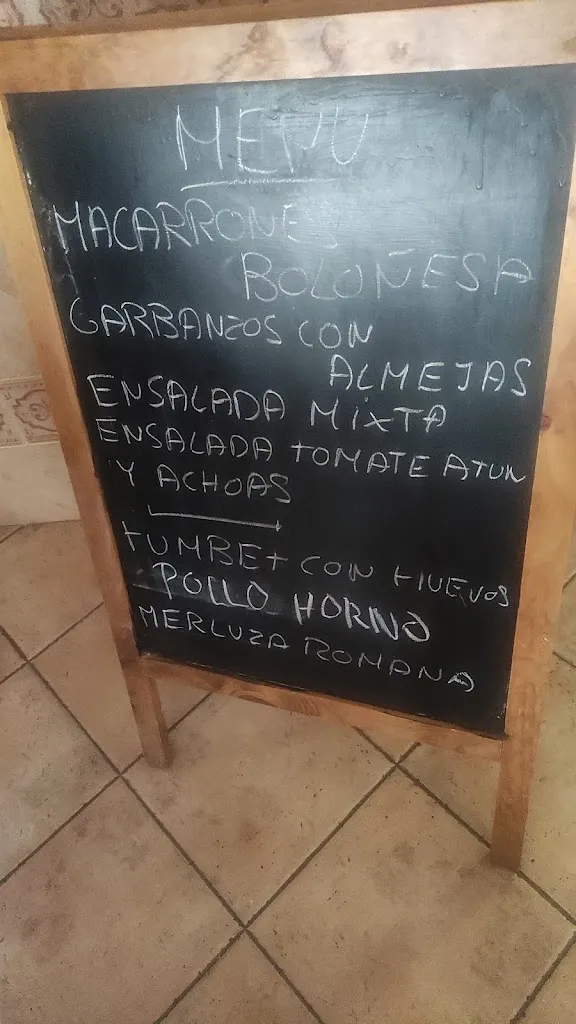 MENU
MACARRONES
BOLOÑESA
GARBANZOS CON
ALMEJAS
ENSALADA MIXTA
ENSALADA TOMATE ATUN
Y ACHOAS
TUMBET CON HUEVOS
POLLO HORNO
MERLUZA ROMANA